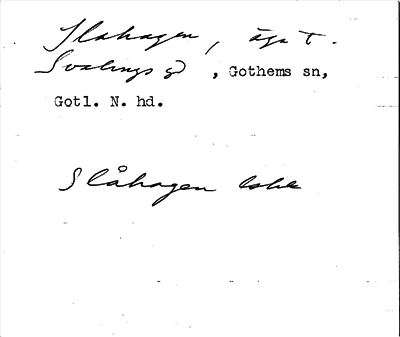 Slahagen, äga t.
Svalings gd, Gothems sn,
Gotl. N. hd.
Slåhagen